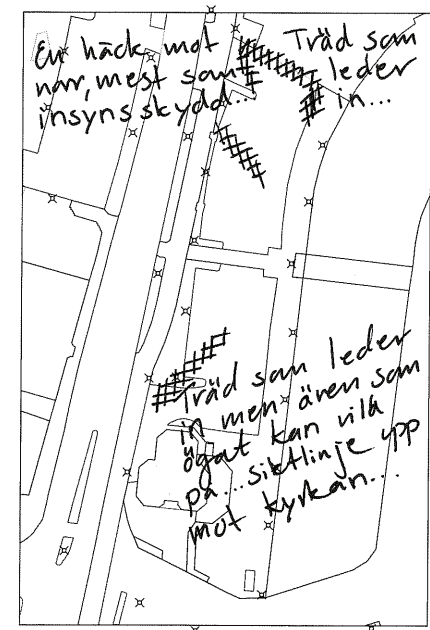 En häck mot
norr, mest som
insynsskydd...
Träd som
leder
in...
Träd som leder
in men även som
ögat kan vila
på...siktlinje upp
mot kyrkan...